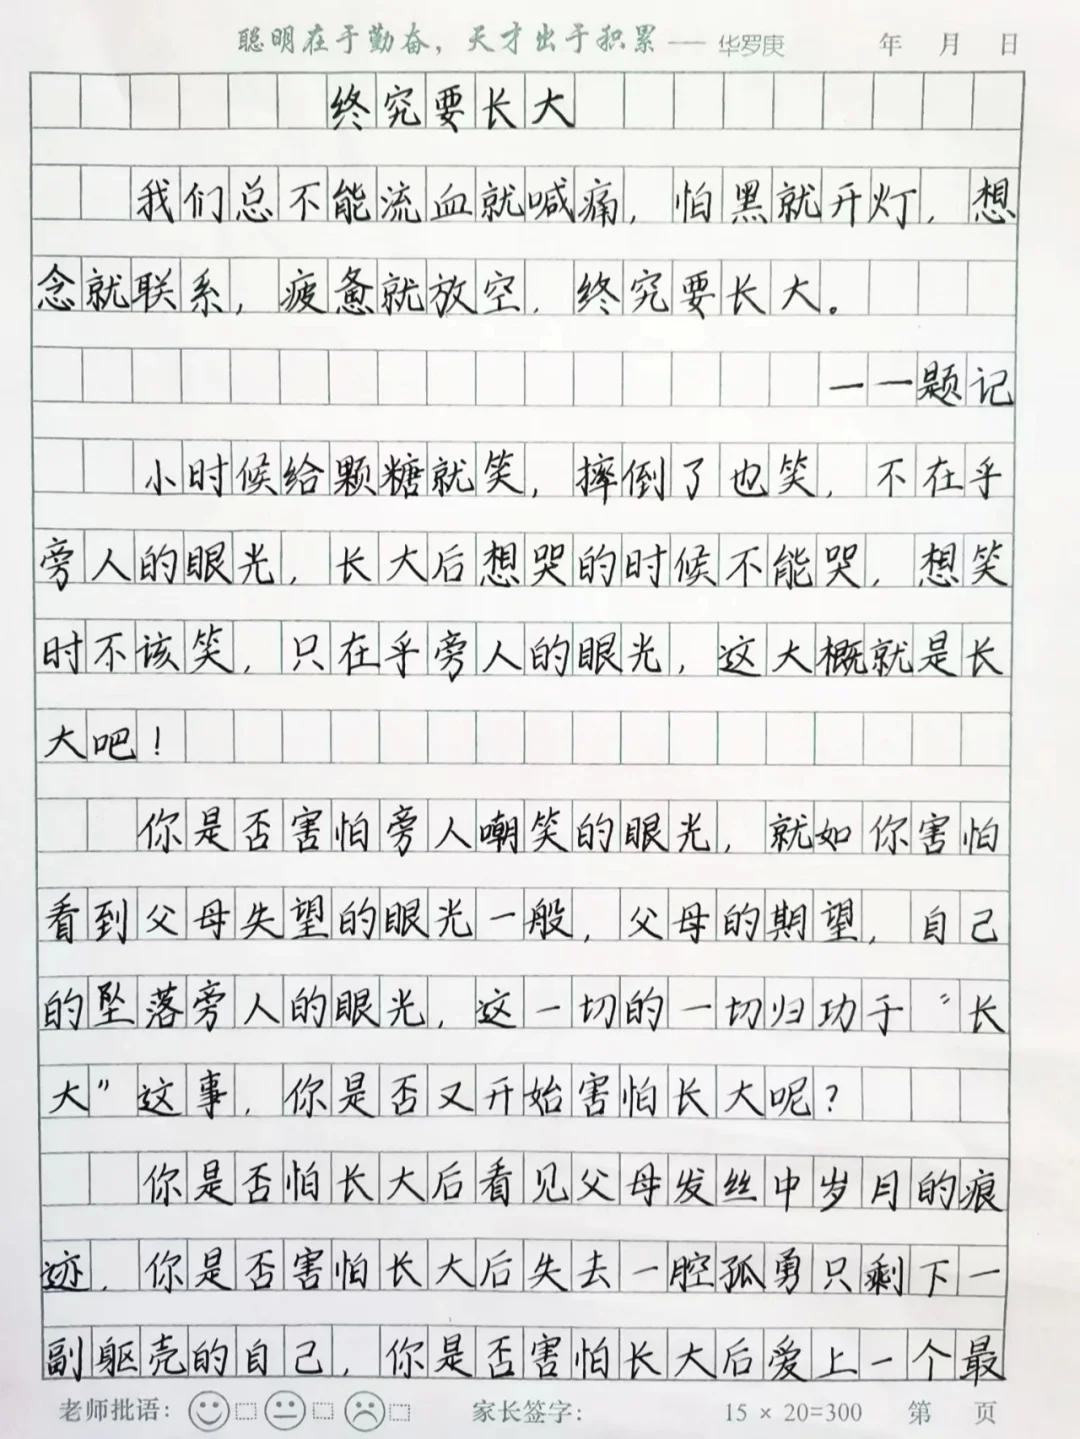 聪明在于勤奋，天才出于积累——华罗庚 年 月 日
终究要长大
我们总不能流血就喊痛，怕黑就开灯，想
念就联系，疲惫就放空，终究要长大。
——题记
小时候给颗糖就笑，摔倒了也笑，不在乎
旁人的眼光，长大后想哭的时候不能哭，想笑
时不该笑，只在乎旁人的眼光，这大概就是长
大吧！
你是否害怕旁人嘲笑的眼光，就如你害怕
看到父母失望的眼光一般，父母的期望，自己
的坠落旁人的眼光，这一切的一切归功于“长
大”这事，你是否又开始害怕长大呢？
你是否怕长大后看见父母发丝中岁月的痕
迹，你是否害怕长大后失去一腔孤勇只剩下一
副躯壳的自己，你是否害怕长大后爱上一个最
老师批语： 家长签字： 15 × 20=300 第 页